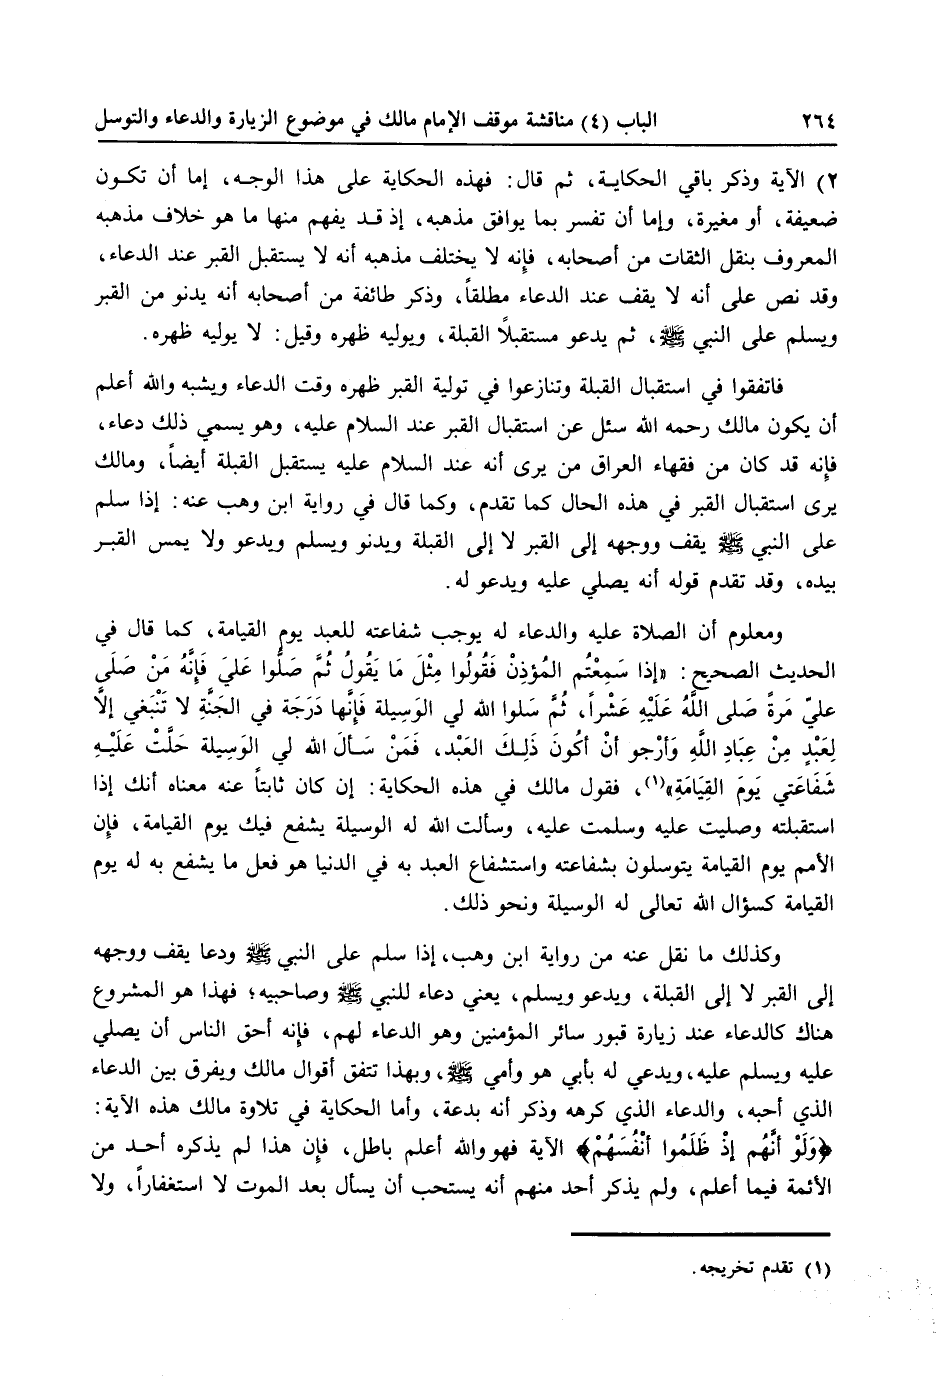 ٢٦٤ الباب (٤) مناقشة موقف الإمام مالك في موضوع الزيارة والدعاء والتوسل
٢) الآية وذكر باقي الحكاية، ثم قال: فهذه الحكاية على هذا الوجه، إما أن تكون
ضعيفة، أو مغيرة، وإما أن تفسر بما يوافق مذهبه، إذ قد يفهم منها ما هو خلاف مذهبه
المعروف بنقل الثقات من أصحابه، فإنه لا يختلف مذهبه أنه لا يستقبل القبر عند الدعاء،
وقد نص على أنه لا يقف عند الدعاء مطلقاً، وذكر طائفة من أصحابه أنه يدنو من القبر
ويسلم على النبي ﷺ، ثم يدعو مستقبلاً القبلة، ويوليه ظهره وقيل: لا يوليه ظهره.
فاتفقوا في استقبال القبلة وتنازعوا في تولية القبر ظهره وقت الدعاء ويشبه والله أعلم
أن يكون مالك رحمه الله سئل عن استقبال القبر عند السلام عليه، وهو يسمي ذلك دعاء،
فإنه قد كان من فقهاء العراق من يرى أنه عند السلام عليه يستقبل القبلة أيضاً، ومالك
يرى استقبال القبر في هذه الحال كما تقدم، وكما قال في رواية ابن وهب عنه: إذا سلم
على النبي ﷺ يقف ووجهه إلى القبر لا إلى القبلة ويدنو ويسلم ويدعو ولا يمس القبر
بيده، وقد تقدم قوله أنه يصلي عليه ويدعو له.
ومعلوم أن الصلاة عليه والدعاء له يوجب شفاعته للعبد يوم القيامة، كما قال في
الحديث الصحيح: «إذا سَمِعْتُم المُؤذِنْ فَقُولُوا مِثْلَ مَا يَقُولُ ثُمَّ صَلُّوا عَليَ فَإِنَّهُ مَنْ صَلَى
عليّ مَرةً صَلى اللَّهُ عَلَيْهِ عَشْراً، ثُمَّ سَلوا الله لي الوَسِيلة فَإِنَّها دَرَجَة في الجَنَّةِ لا تَنْبَغي إلاَّ
لِعَبْدٍ مِنْ عِبَادِ اللَّهِ وَأرْجو أنْ أكُونَ ذَلِكَ العَبْد، فَمَنْ سَألَ الله لي الوَسِيلة حَلَّتْ عَلَيْهِ
شَفَاعَتي يَومَ القِيَامَةِ»(١)، فقول مالك في هذه الحكاية: إن كان ثابتاً عنه معناه أنك إذا
استقبلته وصليت عليه وسلمت عليه، وسألت الله له الوسيلة يشفع فيك يوم القيامة، فإن
الأمم يوم القيامة يتوسلون بشفاعته واستشفاع العبد به في الدنيا هو فعل ما يشفع به له يوم
القيامة كسؤال الله تعالى له الوسيلة ونحو ذلك.
وكذلك ما نقل عنه من رواية ابن وهب، إذا سلم على النبي ﷺ ودعا يقف ووجهه
إلى القبر لا إلى القبلة، ويدعو ويسلم، يعني دعاء للنبي ﷺ وصاحبيه؛ فهذا هو المشروع
هناك كالدعاء عند زيارة قبور سائر المؤمنين وهو الدعاء لهم، فإنه أحق الناس أن يصلي
عليه ويسلم عليه، ويدعي له بأبي هو وأمي ﷺ، وبهذا تتفق أقوال مالك ويفرق بين الدعاء
الذي أحبه، والدعاء الذي كرهه وذكر أنه بدعة، وأما الحكاية في تلاوة مالك هذه الآية:
﴿وَلَوْ أَنَّهُم إذْ ظَلَمُوا أَنْفُسَهُمْ﴾ الآية فهو والله أعلم باطل، فإن هذا لم يذكره أحد من
الأئمة فيما أعلم، ولم يذكر أحد منهم أنه يستحب أن يسأل بعد الموت لا استغفاراً، ولا
(١) تقدم تخريجه.